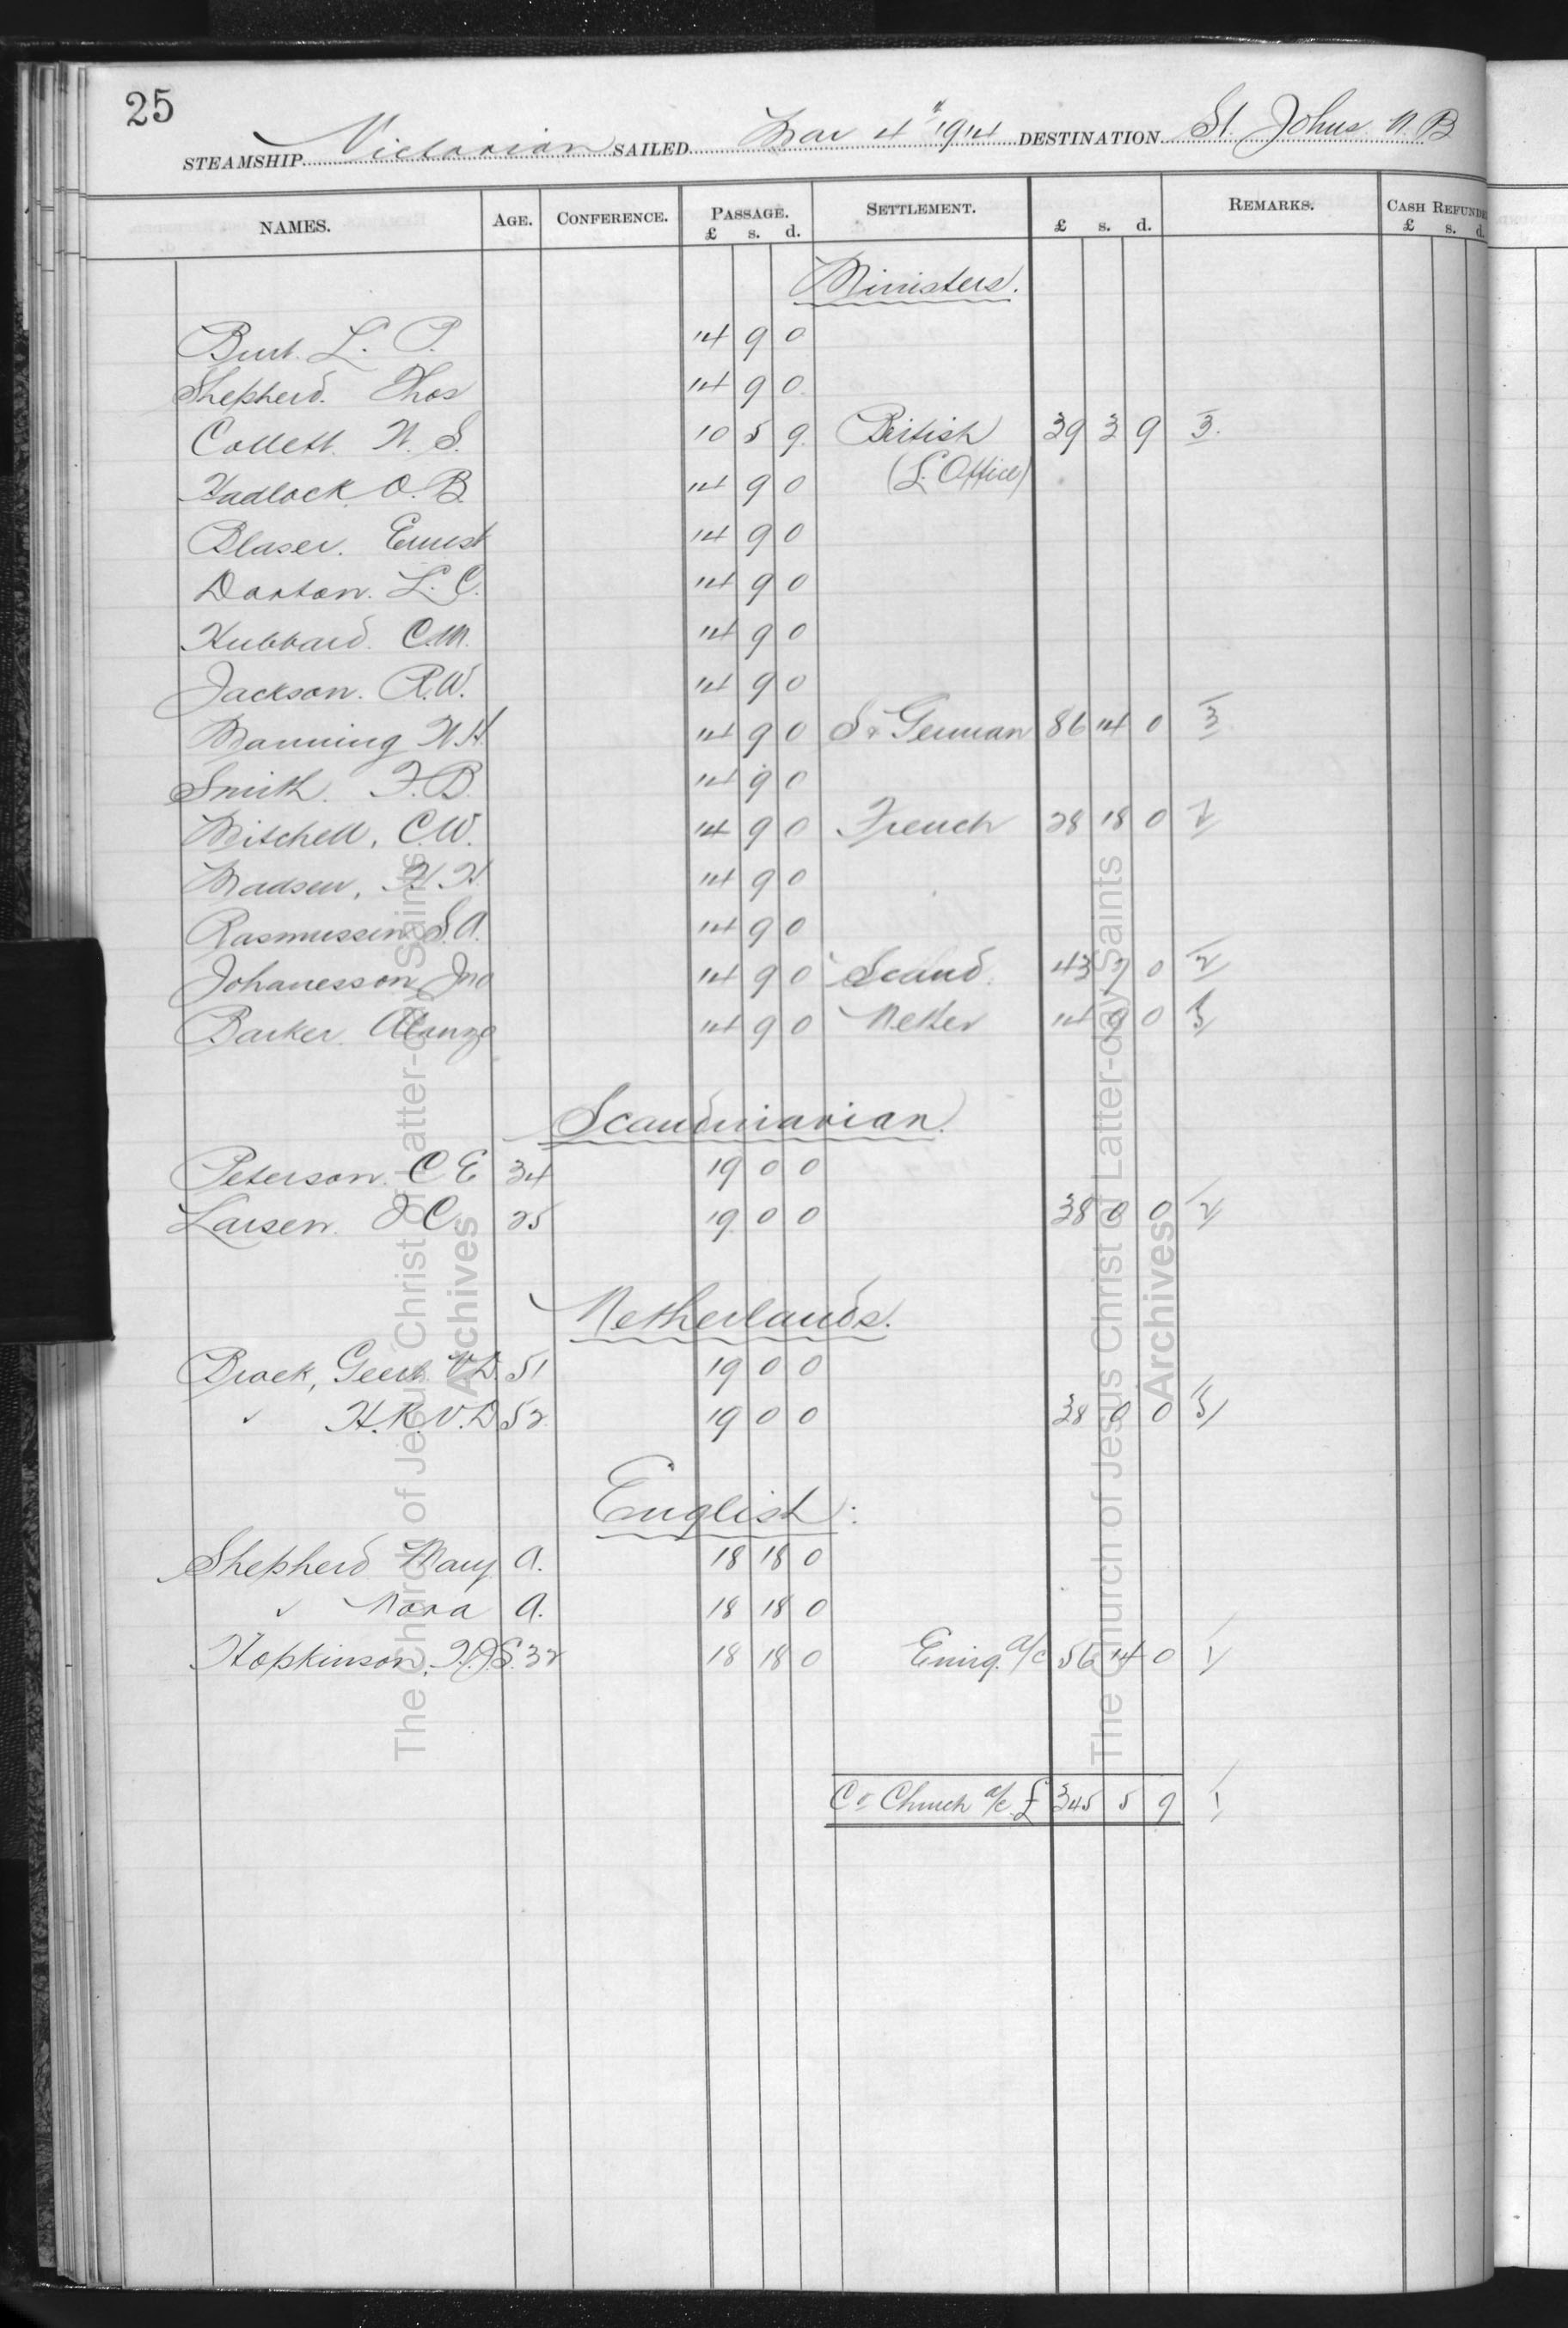 25
STEAMSHIP Victorian SAILED Mar 4" 1914 DESTINATION St. Johns N. B
NAMES. AGE. CONFERENCE. PASSAGE. SETTLEMENT. £ s. d. REMARKS. CASH REFUNDE
£ s. d. £ s. d.
Ministers.
Burt. L. P. 14 9 0
Shepherd. Thos 14 9 0
Collett. W. S. 10 5 9 British 39 3 9 3.
Hadlock, O. B. 14 9 0 (L. Office)
Blaser. Ernest 14 9 0
Dorton. L. C. 14 9 0
Hubbard. C.M. 14 9 0
Jackson. R.W. 14 9 0
Manning W.H. 14 9 0 S & German 86 14 0 3
Smith. F. B. 14 9 0
Mitchell, C.W. 14 9 0 French 28 18 0
Madsen, H. H. 14 9 0
Rasmussen S.A. 14 9 0
Johanesson Jno 14 9 0 Scand. 43 7 0 2
Barker. Alonzo 14 9 0 Nether 14 9 0
Scandinavian.
Peterson. C E 34 19 0 0
Larsen. J C. 25 19 0 0 38 0 0 2
Netherlands.
Broek, Geert. V.D. 51 19 0 0
" H.R.V.D 52 19 0 0 38 0 0
English:
Shepherd Mary A. 18 18 0
" Nora A. 18 18 0
Hopkinson, 32 18 18 0 Emig. a/c 56 14 0
Cr Church a/c £ 345 5 9
The Church of Jesus Christ of Latter-day Saints
Archives
The Church of Jesus Christ of Latter-day Saints
Archives